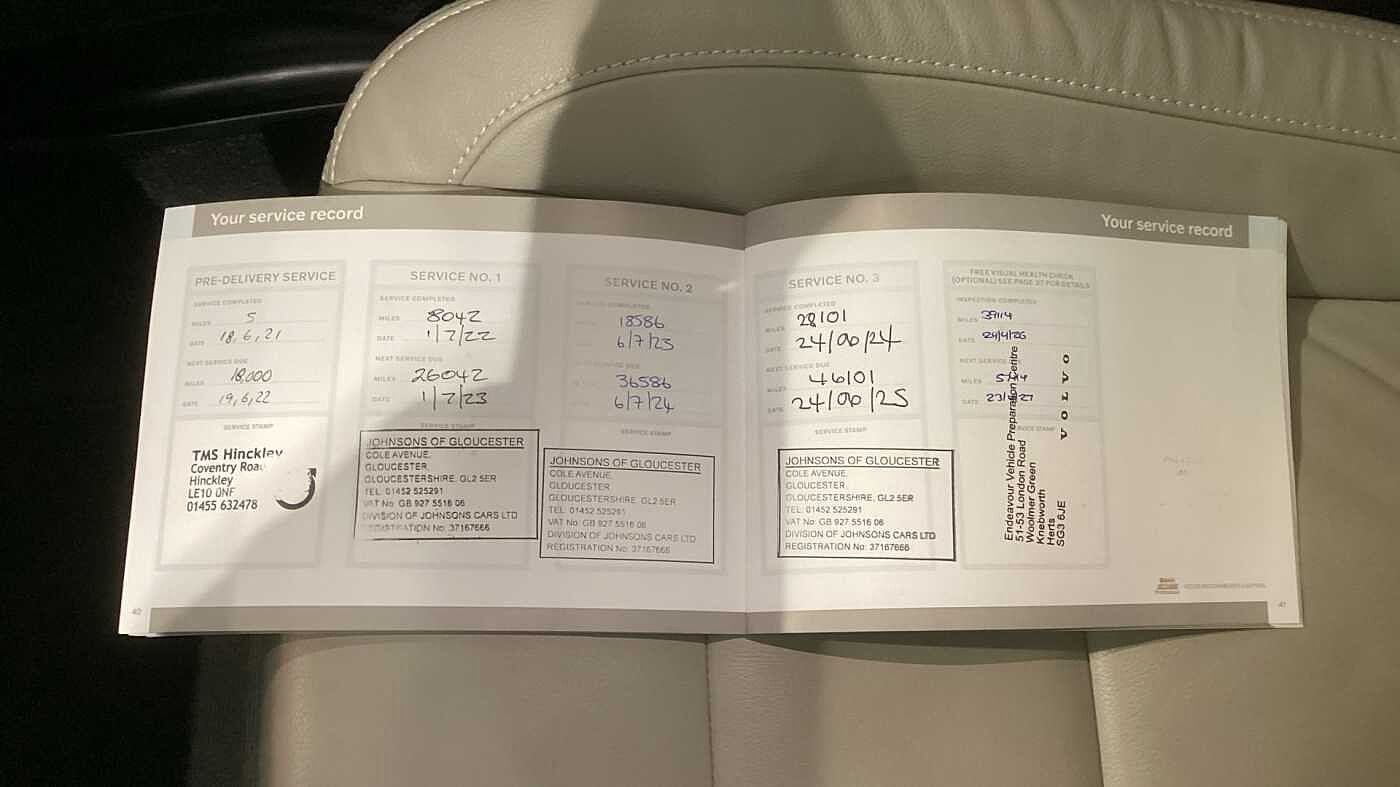 Your service record
PRE-DELIVERY SERVICE
SERVICE COMPLETED
MILES 5
DATE 18,6,21
NEXT SERVICE DUE
MILES 18,000
DATE 19,6,22
SERVICE STAMP
TMS Hinckley
Coventry Road
Hinckley
LE10 0NF
01455 632478
SERVICE NO. 1
SERVICE COMPLETED
MILES 8042
DATE 1/7/22
NEXT SERVICE DUE
MILES 26042
DATE 1/7/23
SERVICE STAMP
JOHNSONS OF GLOUCESTER
COLE AVENUE,
GLOUCESTER,
GLOUCESTERSHIRE, GL2 5ER
TEL: 01452 525291
VAT No: GB 927 5516 06
DIVISION OF JOHNSONS CARS LTD
REGISTRATION No: 37167666
SERVICE NO. 2
SERVICE COMPLETED
18586
6/7/23
36586
6/7/24
SERVICE STAMP
JOHNSONS OF GLOUCESTER
COLE AVENUE,
GLOUCESTER
GLOUCESTERSHIRE, GL2 5ER
TEL: 01452 525291
VAT No: GB 927 5516 06
DIVISION OF JOHNSONS CARS LTD
REGISTRATION No: 37167666
40
Your service record
SERVICE NO. 3
SERVICE COMPLETED
MILES 28101
DATE 24/06/24
NEXT SERVICE DUE
MILES 46101
DATE 24/06/25
SERVICE STAMP
JOHNSONS OF GLOUCESTER
COLE AVENUE,
GLOUCESTER,
GLOUCESTERSHIRE, GL2 5ER
TEL: 01452 525291
VAT No: GB 927 5516 06
DIVISION OF JOHNSONS CARS LTD
REGISTRATION No: 37167666
FREE VISUAL HEALTH CHECK
(OPTIONAL) SEE PAGE 37 FOR DETAILS
INSPECTION COMPLETED
MILES 39114
DATE 24/4/26
NEXT SERVICE
MILES
DATE
STAMP
Endeavour Vehicle Preparation Centre
51-53 London Road
Woolmer Green
Knebworth
Herts
SG3 6JE
VOLVO
41